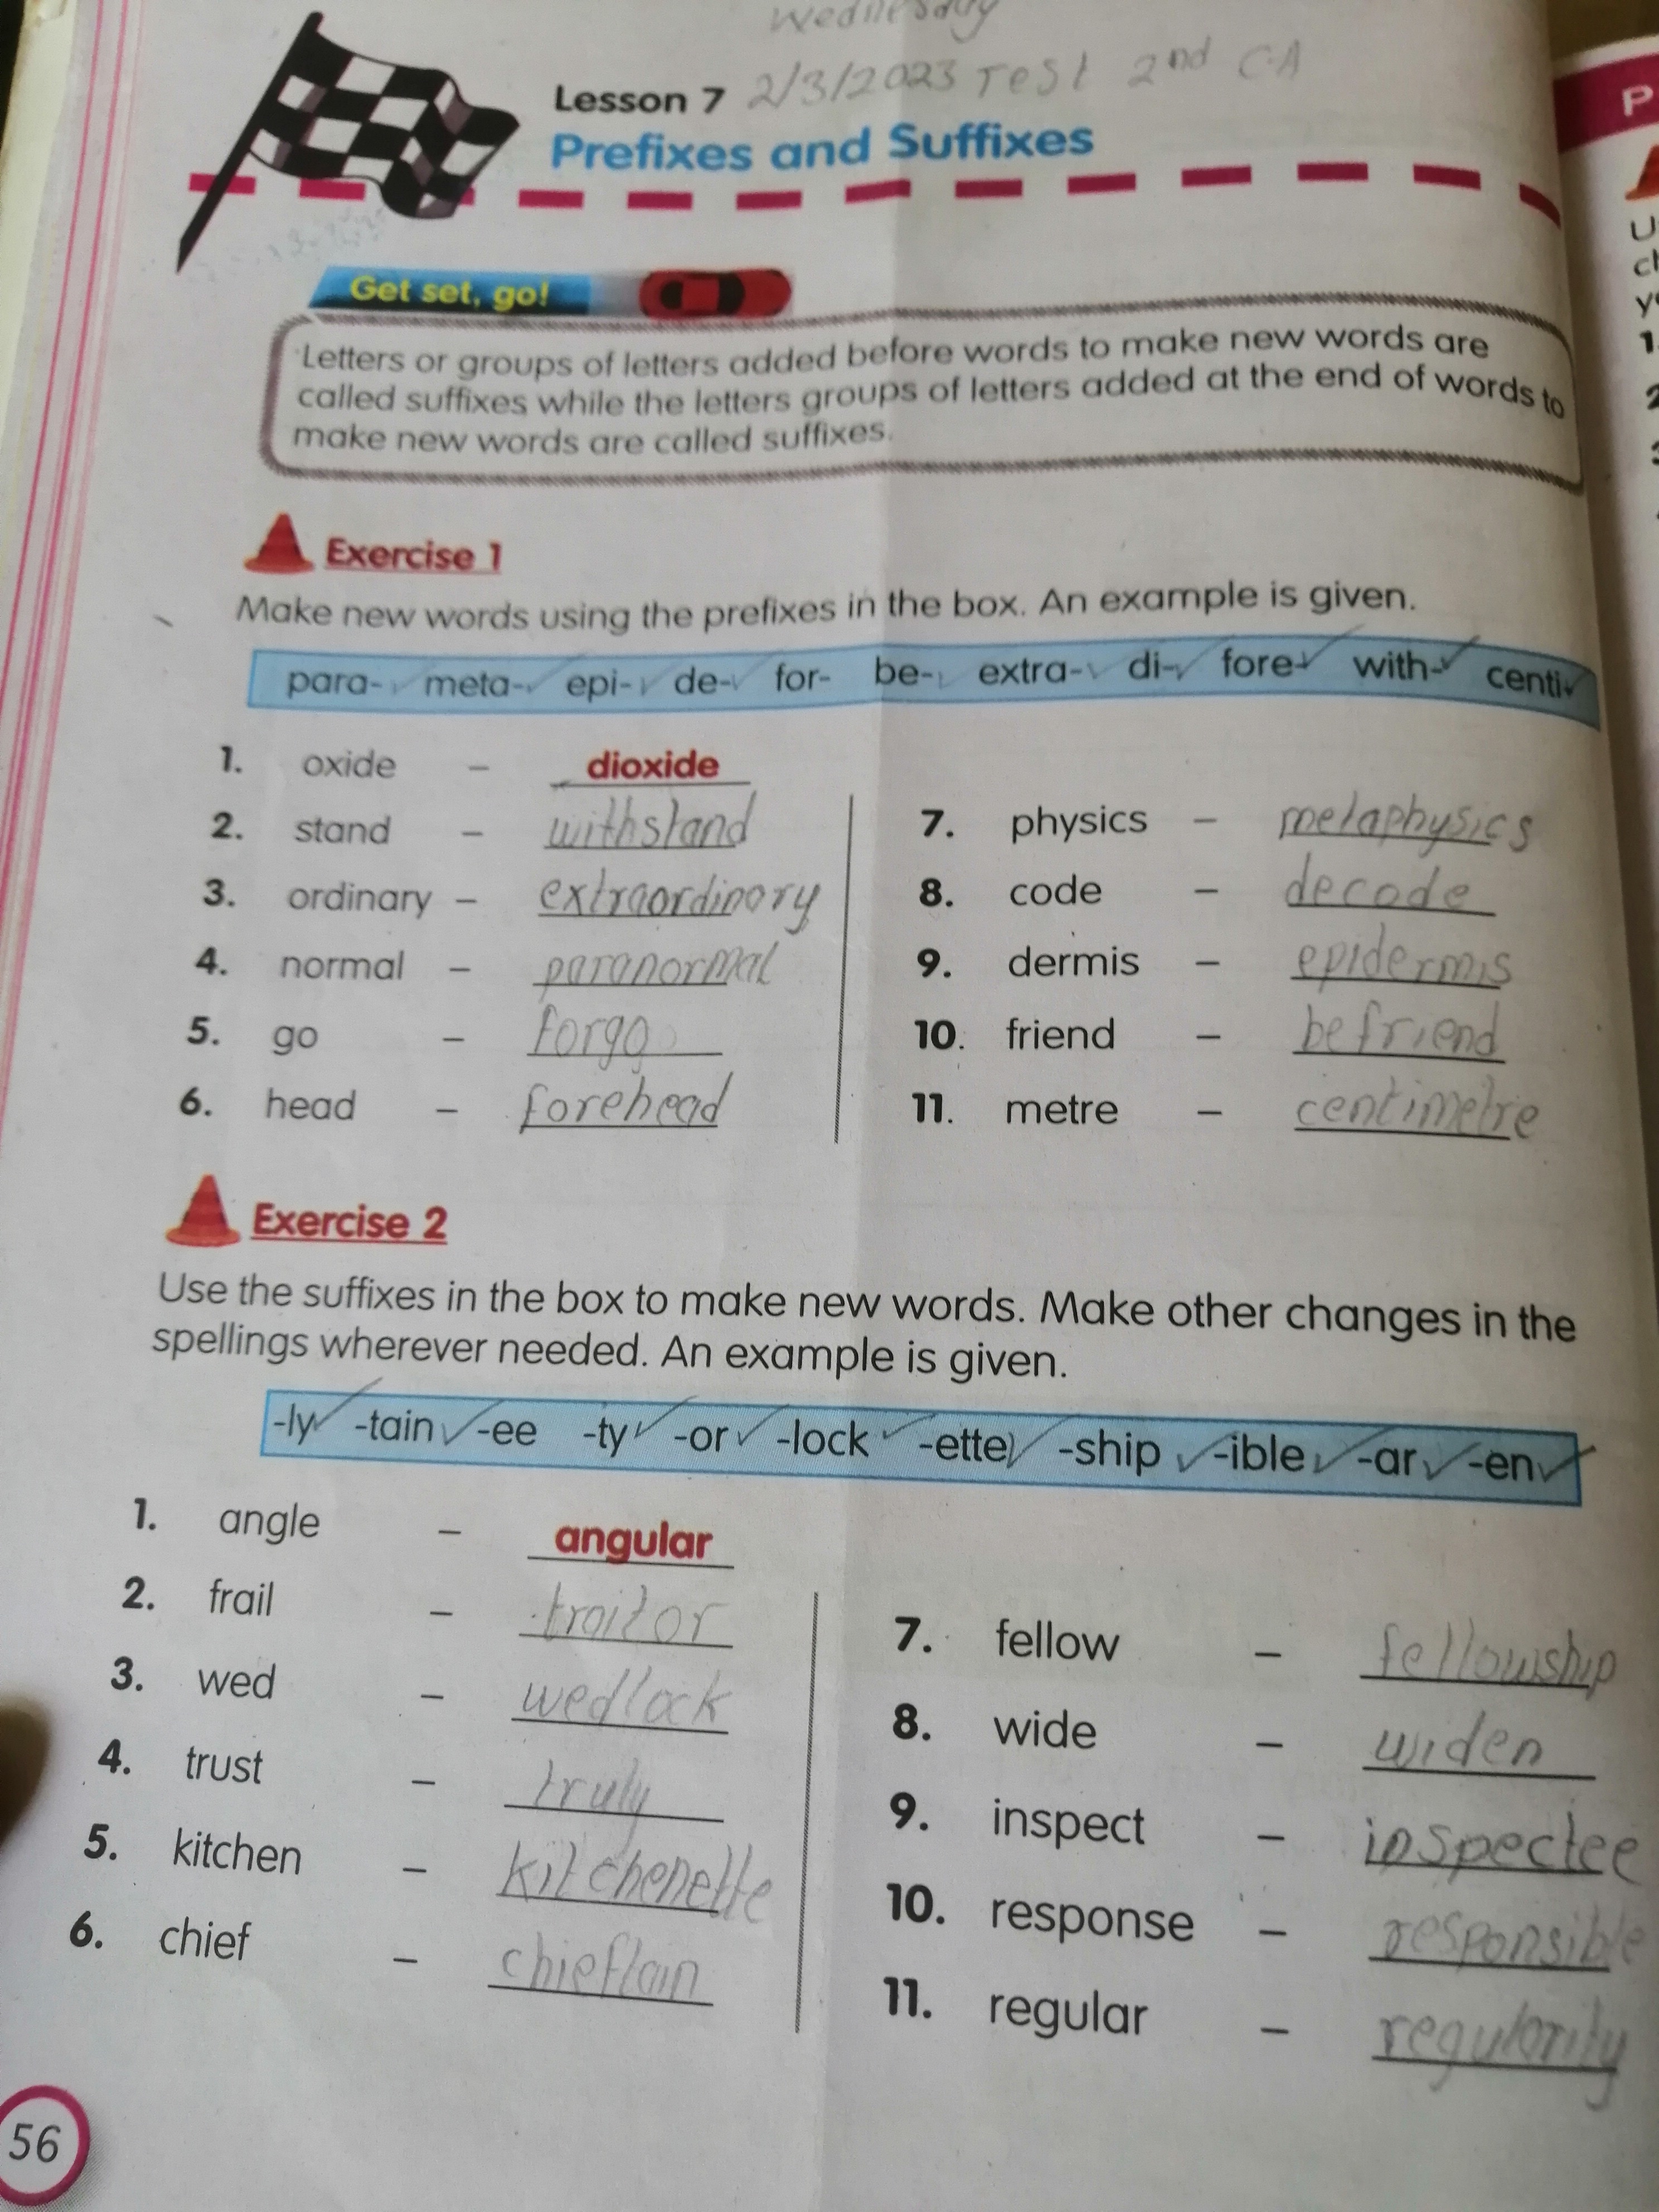 Wednesday
Lesson 7 2/3/2023 Test 2nd C.A
Prefixes and Suffixes
Get set, go!
Letters or groups of letters added before words to make new words are
called suffixes while the letters groups of letters added at the end of words to
make new words are called suffixes.
Exercise 1
Make new words using the prefixes in the box. An example is given.
para- meta- epi- de- for- be- extra- di- fore- with- centi-
1. oxide – dioxide
2. stand – withstand
3. ordinary – extraordinary
4. normal – paranormal
5. go – forgo
6. head – forehead
7. physics – metaphysics
8. code – decode
9. dermis – epidermis
10. friend – befriend
11. metre – centimetre
Exercise 2
Use the suffixes in the box to make new words. Make other changes in the
spellings wherever needed. An example is given.
-ly -tain -ee -ty -or -lock -ette -ship -ible -ar -en
1. angle – angular
2. frail – traitor
3. wed – wedlock
4. trust – truly
5. kitchen – kitchenette
6. chief – chieftain
7. fellow – fellowship
8. wide – widen
9. inspect – inspectee
10. response – responsible
11. regular – regularity
56
P
U
ch
1.
2